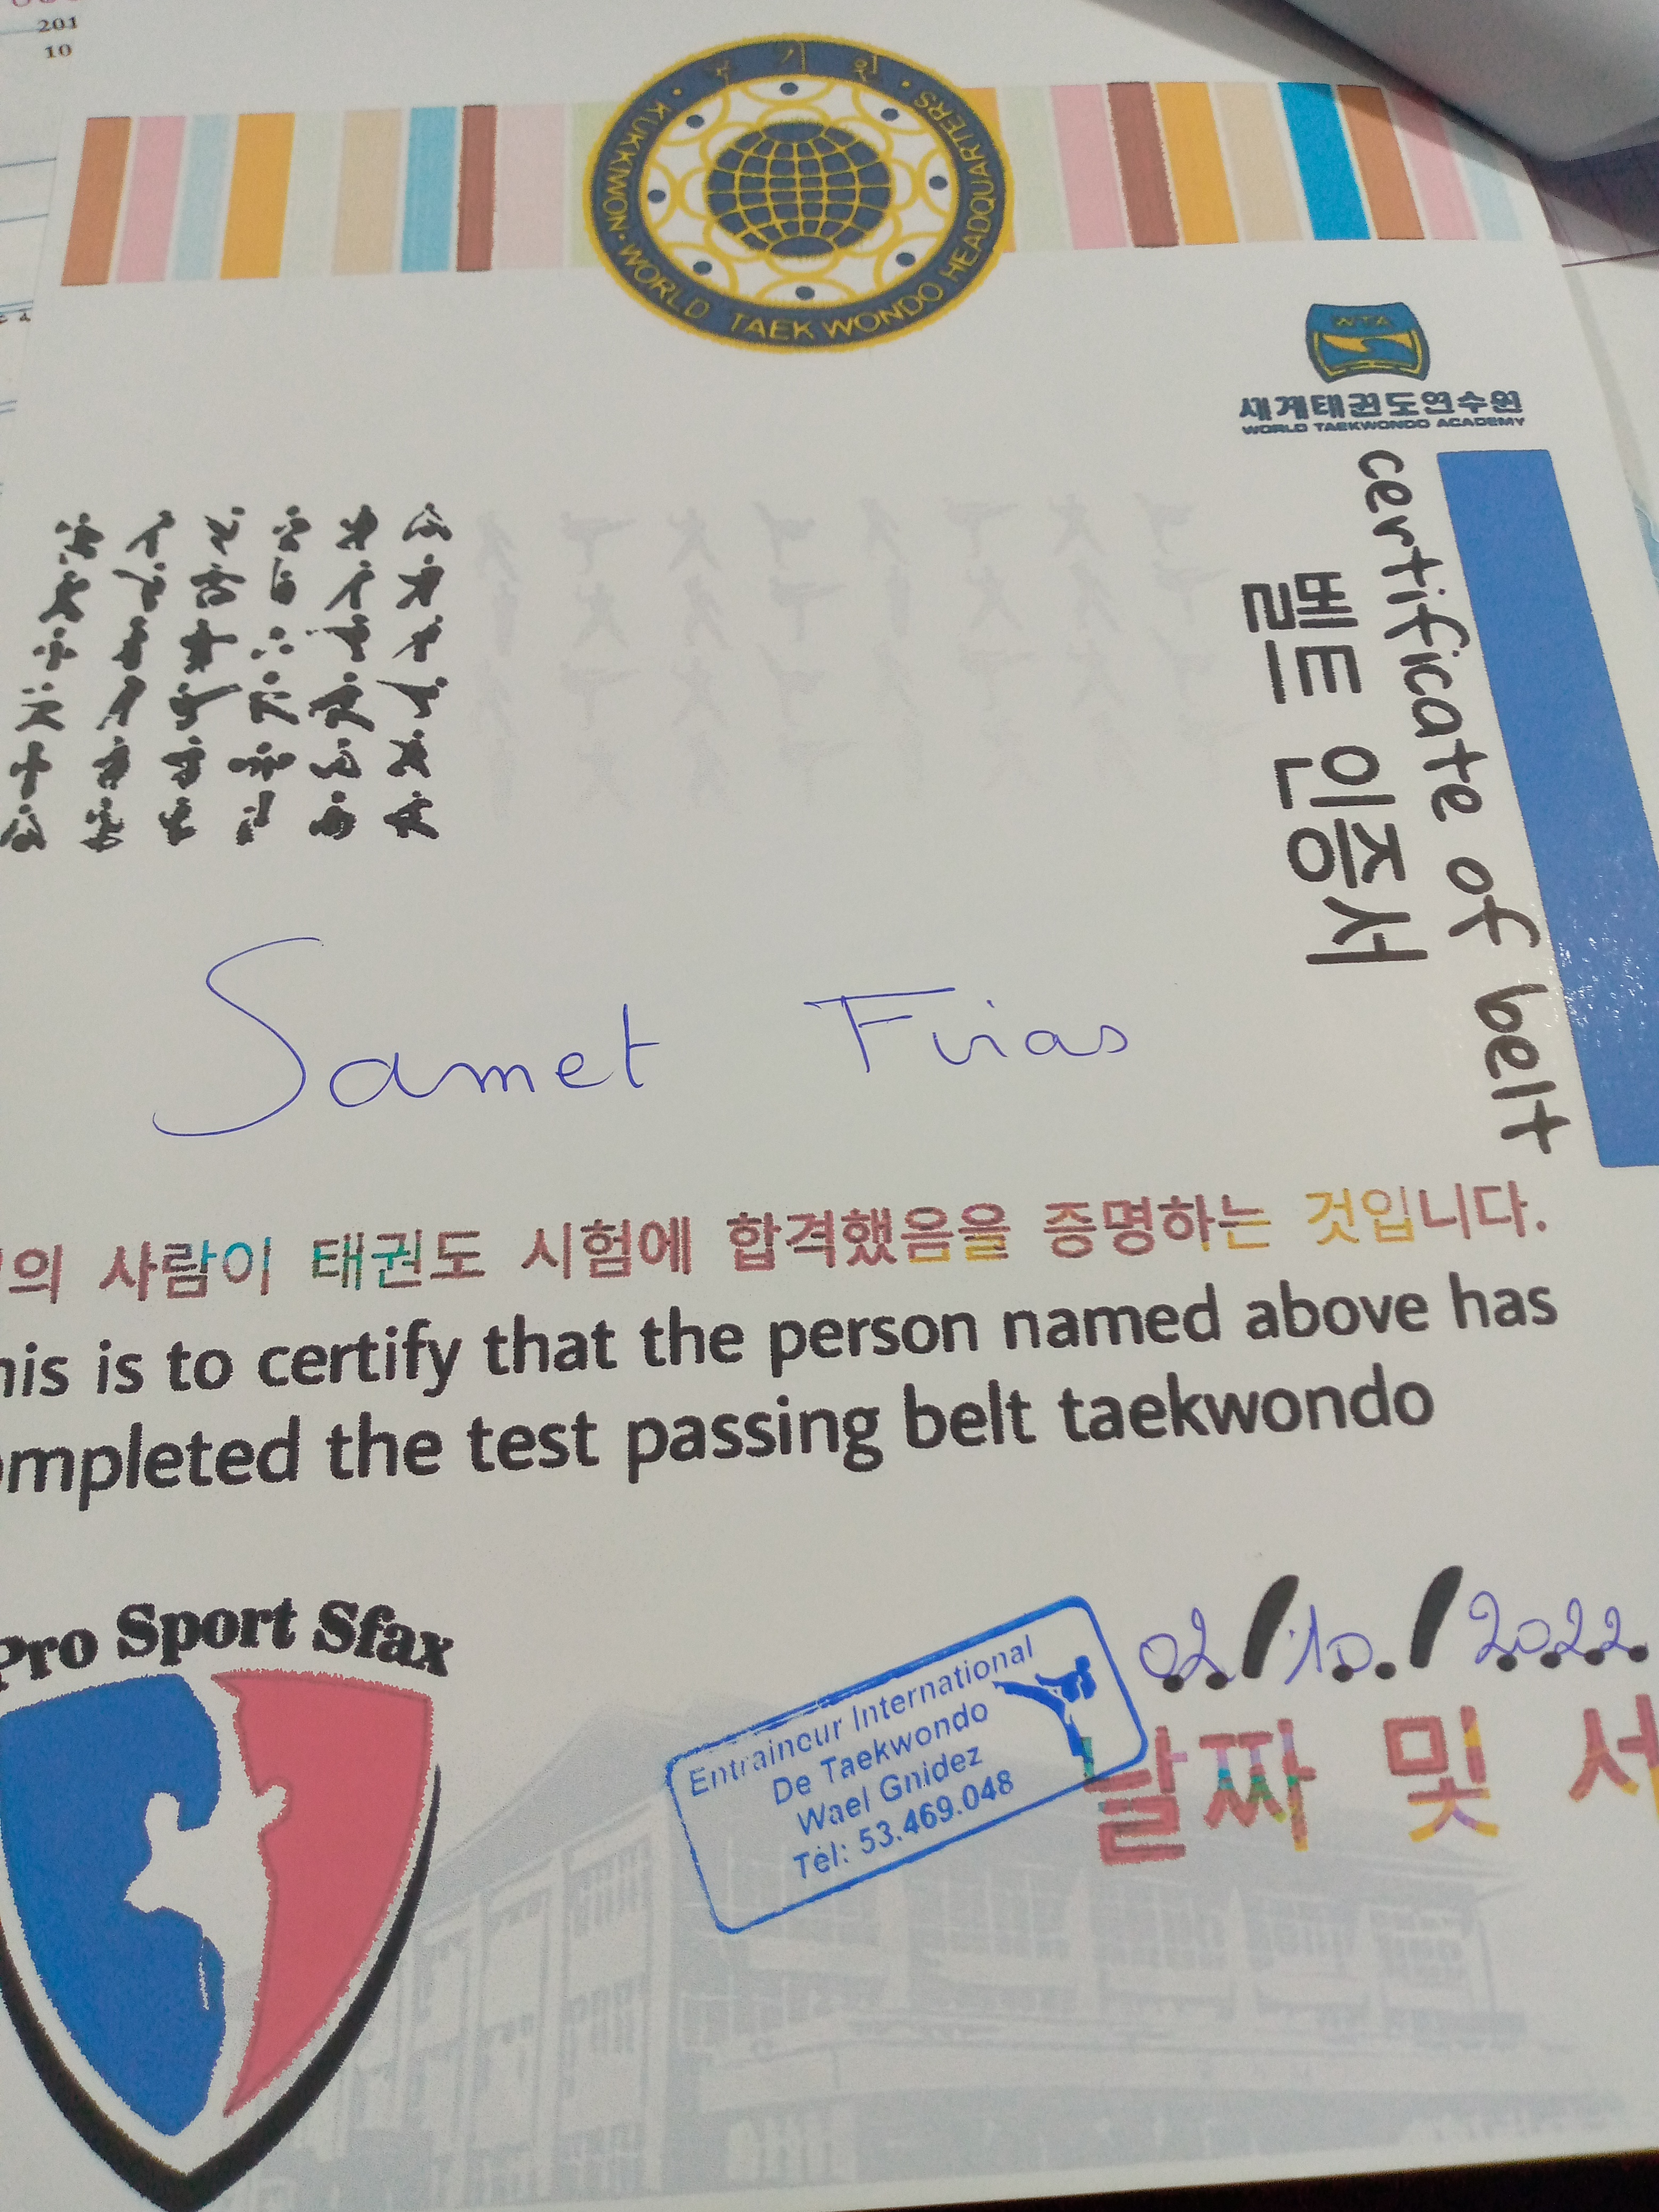 201
10
국기원
KUKKIWON · WORLD TAEKWONDO HEADQUARTERS
WTA
세계태권도연수원
WORLD TAEKWONDO ACADEMY
certificate of belt
벨트 인증서
Samet Firas
의 사람이 태권도 시험에 합격했음을 증명하는 것입니다.
his is to certify that the person named above has
ompleted the test passing belt taekwondo
Pro Sport Sfax
02/10/2022
Entraineur International
De Taekwondo
Wael Gnidez
Tél: 53.469.048
날짜 및 서